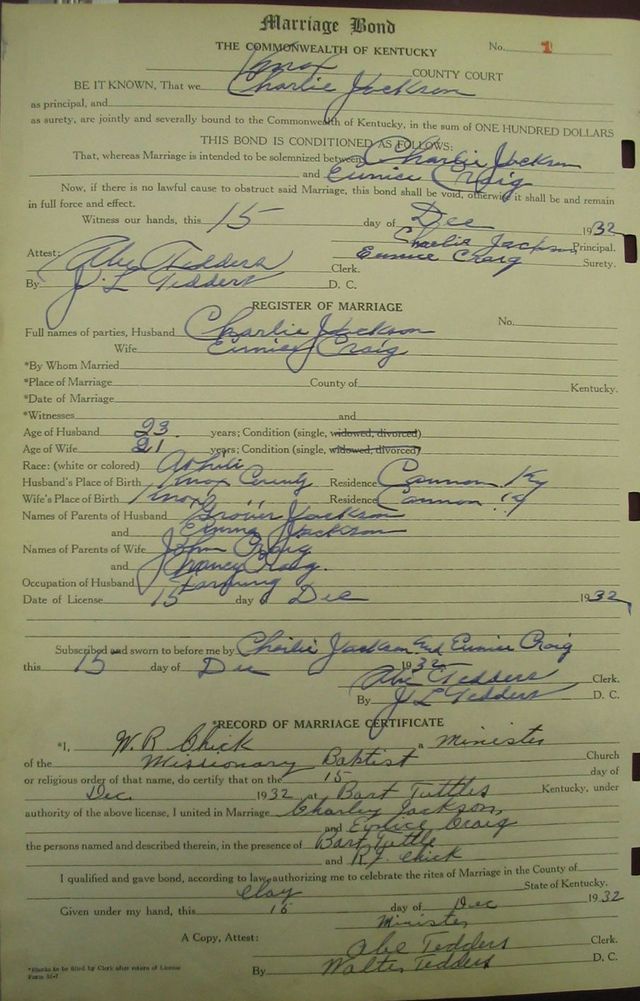 Marriage Bond
THE COMMONWEALTH OF KENTUCKY No. 1
Knox COUNTY COURT
BE IT KNOWN, That we Charlie Jackson
as principal, and
as surety, are jointly and severally bound to the Commonwealth of Kentucky, in the sum of ONE HUNDRED DOLLARS
THIS BOND IS CONDITIONED AS FOLLOWS:
That, whereas Marriage is intended to be solemnized between Charlie Jackson
and Eunice Craig
Now, if there is no lawful cause to obstruct said Marriage, this bond shall be void, otherwise it shall be and remain
in full force and effect.
Witness our hands, this 15 day of Dec 1932
Charlie Jackson Principal.
Attest: Eunice Craig Surety.
Abe Tedders Clerk.
By J. L. Tedders D. C.
REGISTER OF MARRIAGE
Full names of parties, Husband Charlie Jackson No.
Wife Eunice Craig
*By Whom Married
*Place of Marriage County of Kentucky.
*Date of Marriage
*Witnesses and
Age of Husband 23 years; Condition (single, widowed, divorced)
Age of Wife 21 years; Condition (single, widowed, divorced)
Race: (white or colored) White
Husband's Place of Birth Knox County Residence Cannon Ky
Wife's Place of Birth Knox " Residence Cannon Ky
Names of Parents of Husband Grover Jackson
and Emma Jackson
Names of Parents of Wife John Craig
and Craig.
Occupation of Husband Farming
Date of License 15 day of Dec 1932
Subscribed and sworn to before me by Charlie Jackson and Eunice Craig
this 15 day of Dec 1932
Abe Tedders Clerk.
By J L Tedders D. C.
*RECORD OF MARRIAGE CERTIFICATE
*I, W. R. Chick a Minister
of the Missionary Baptist Church
or religious order of that name, do certify that on the 15 day of
Dec. 1932 at Bart Tuttles Kentucky, under
authority of the above license, I united in Marriage Charley Jackson,
and Eunice Craig
the persons named and described therein, in the presence of Bart Tuttle
and R. J. Chick
I qualified and gave bond, according to law authorizing me to celebrate the rites of Marriage in the County of
Clay State of Kentucky.
Given under my hand, this 15 day of Dec 1932
Minister
A Copy, Attest: Abe Tedders Clerk.
By Walter Tedders D. C.
*Blanks to be filled by Clerk after return of License